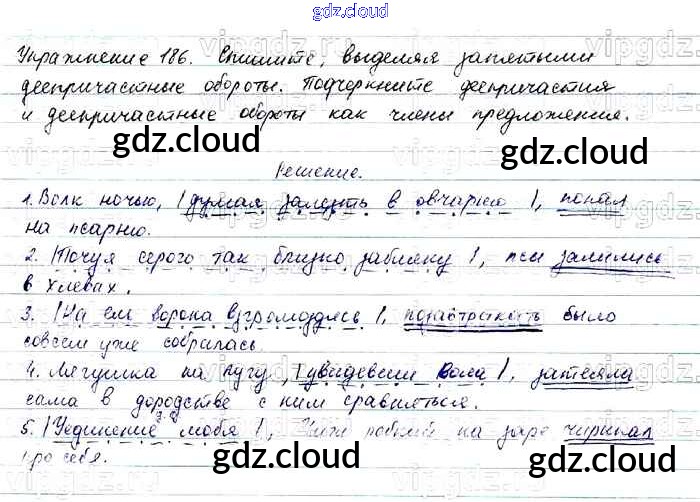 gdz.cloud
Упражнение 186. Спишите, выделяя запятыми
деепричастные обороты. Подчеркните деепричастия
и деепричастные обороты как члены предложения.
gdz.cloud
gdz.cloud
Решение.
1. Волк ночью, | думая залезть в овчарню |, попал
на псарню.
2. | Почуя серого так близко забияку |, псы залились
в хлевах.
3. | На ель ворона взгромоздясь |, позавтракать было
совсем уже собралась.
gdz.cloud
gdz.cloud
4. Лягушка на лугу, | увидевши вола |, затеяла
сама в дородстве с ним сравняться.
5. | Уединение любя |, Чиж робкий на заре чирикал
про себя.
gdz.cloud
gdz.cloud